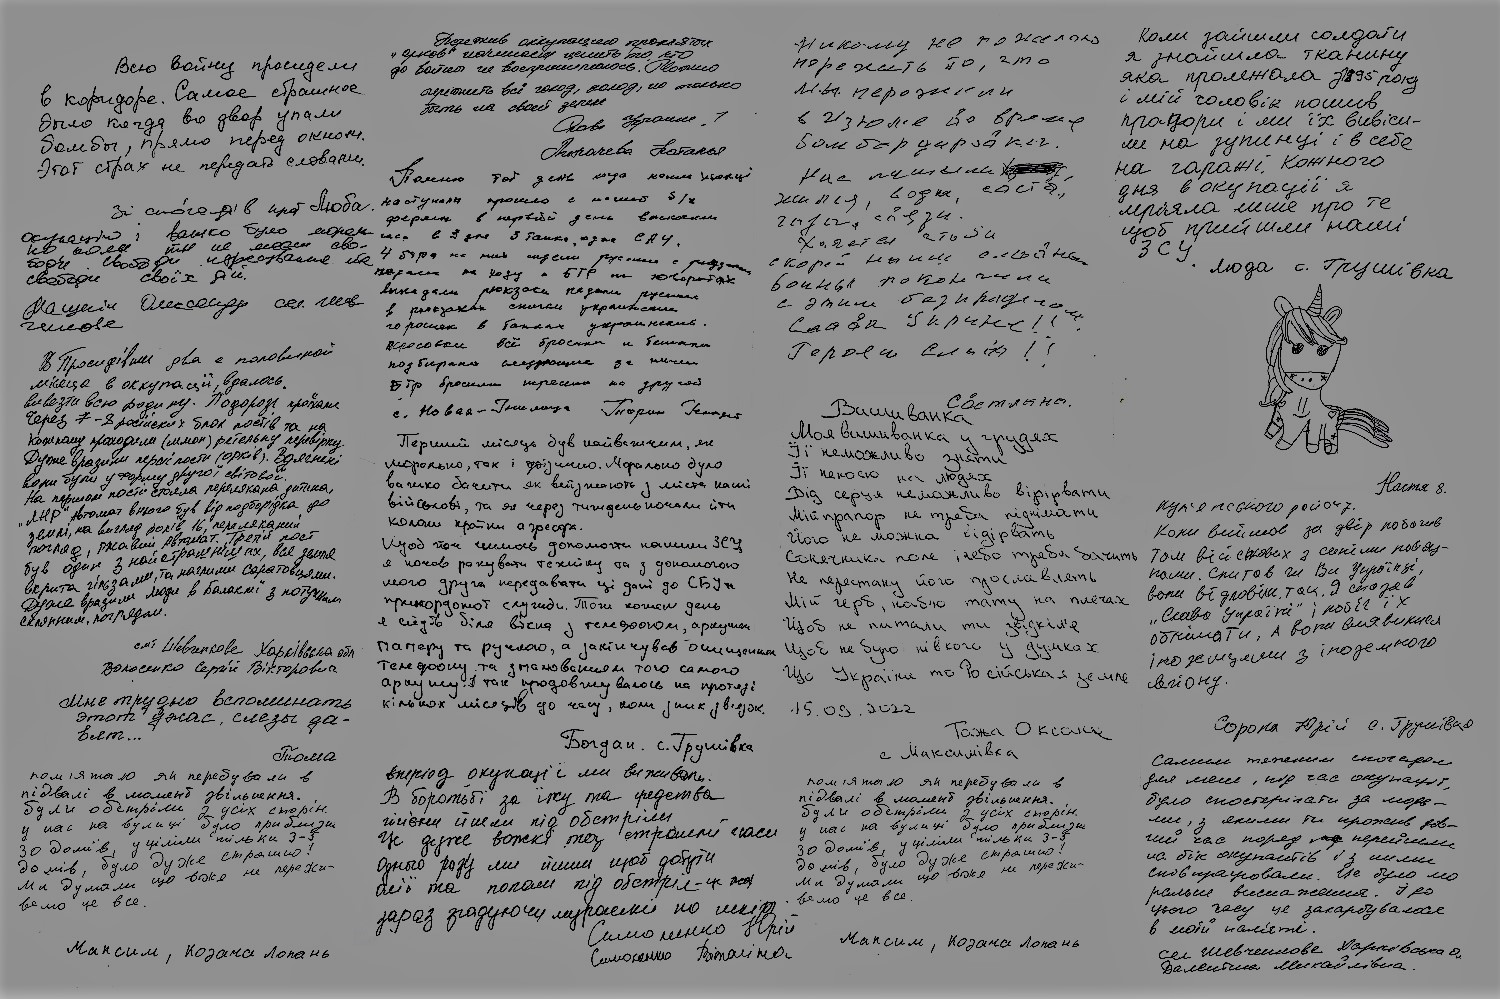 Всю войну просидели
в коридоре. Самое страшное
было когда во двор упали
бомбы, прямо перед окном.
Этот страх не передать словами.
Зі спогадів Люба.
окупацію; важко було
свободи своїх дій.
Олександр сел. Шев
ченкове
Просидівши два с половиной
місяца в оккупації, вдалось
вивезти всю родину. По дорозі проїхали
через 7-8 російських блок постів та на
кожному проходили ретельну перевірку.
Дуже вразили перші пости (орків). Вдягнені
вони були у форму другої світової.
На першом пості стояла перелякана дитина,
"ЛНР" Автомат якого був від подборідка до
землі, на вигляд років 16, переляканий
погляд, ржавий автомат. Третій пост
був один з найстрашніших, вся земля
вкрита гільзами, та нашими
Дуже вразили люди в Балаклії з потухшим
скляним, поглядом.
смт Шевченкове Харківська обл
Волосенко Сергій Вікторович
Мне трудно вспоминать
этот ужас, слезы да-
вят...
Тома
пам'ятаю як перебували в
підвалі в момент звільнення.
були обстріли з усіх сторін.
у нас на вулиці було приблизно
30 домів, уціліли тільки 3-5
домів, було дуже страшно!
Ми думали що вже не пережи-
вемо це все.
Максим, Козача Лопань
Пережив оккупацию проклятых
"орков" начинаешь ценить то, что
до войны не воспринималось. Можно
пережить всё голод, холод, но только
быть на своей земле
Слава Украине!
Наталья
Помню тот день когда
наступали прошло с нашей
фермы в первый день
в 3 дня 3 танка, одна САУ.
в рюкзаках сники украинские
горошек в банках украинский.
все бросали и бежали
подбирали следующие за ними
БТР бросили пересели на другой
с. Новая-Гнилица
Перший місяць був найважчим, як
морально, так і фізично. Морально було
важко бачити як виїзжають з міста наші
військові, та як через тиждень почали йти
колони країни агресора.
Щоб хоч чимось допомогти нашим ЗСУ
я почав рахувати техніку та з допомогою
мого друга передавати ці дані до СБУ та
прикордоної служби. Тож кожен день
я сидів біля вікна з телефоном, аркушем
паперу та ручкою, а закінчував очищенням
телефону та зпалюванням того самого
аркушу. І так продовжувалось на протязі
кількох місяців до часу, коли зник зв'язок.
Богдан. с. Грушівка
вперіод окупації ми виживали.
В боротьбі за їжу та средства
гігієни йшли під обстріли
Це дуже важкі та страшні часи
Одного разу ми йшли щоб добути
олії та попали під обстріл-це жах
зараз згадуючи мурашки по шкірі.
Симоненко Юрій
Симоненко Віталіна
Никому не пожелаю
пережить то, что
мы пережили
в Изюме во время
бомбардировки.
Нас лишили
жилья, воды, света,
газа, связи.
Хочется чтобы
скорей наши
воины покончили
с этим безпределом.
Слава Украине!!!
Героям Слава!!
Светлана.
Вишиванка
Моя вишиванка у грудях
Її неможливо зняти
Її неношу на людях
Від серця неможливо відірвати
Мій прапор не треба піднімати
Його не можна відірвать
Сонечника поле і небо треба бачить
Не перестану його прославлять
Мій герб, набью тату на плечах
Щоб не питали ти звідкіля
Щоб не було нівкого у думках
Що Україна то Російськая земля
15.09.2022
Тажа Оксана
с Максимівка
пам'ятаю як перебували в
підвалі в момент звільнення.
були обстріли з усіх сторін.
у нас на вулиці було приблизно
30 домів, уціліли тільки 3-5
домів, було дуже страшно!
Ми думали що вже не пережи-
вемо це все.
Максим, Козача Лопань
Коли зайшли солдати
я знайшла тканину
яка пролежала з 1995 року
і мій чоловік пошив
прапори і ми їх вивіси-
ли на зупинці і в себе
на гаражі. Кожного
дня в окупації я
мріяла лише про те
щоб прийшли наші
ЗСУ.
Люда с. Грушівка
Настя 8.
Куп'янського району.
Коли вийшов за двір побачив
там військових з синіми повяз-
ками. Спитав чи Ви Українці,
вони відповіли так. Я сказав
"Слава Україні" і побіг їх
обнімати, а вони виявились
іноземцями з іноземного
легіону.
Сорока Юрій с. Грушівка
Самим тяжким спогадом
для мене, під час окупації,
було спостерігати за людь-
ми, з якими ти прожив дов-
гий час поряд перейшли
на бік окупантів і з ними
співпрацювали. Це було мо
ральне виснаження. І до
цього часу це закарбувалося
в моїй памяті.
сел Шевченкове Харківська о.
Валентина Михайлівна.